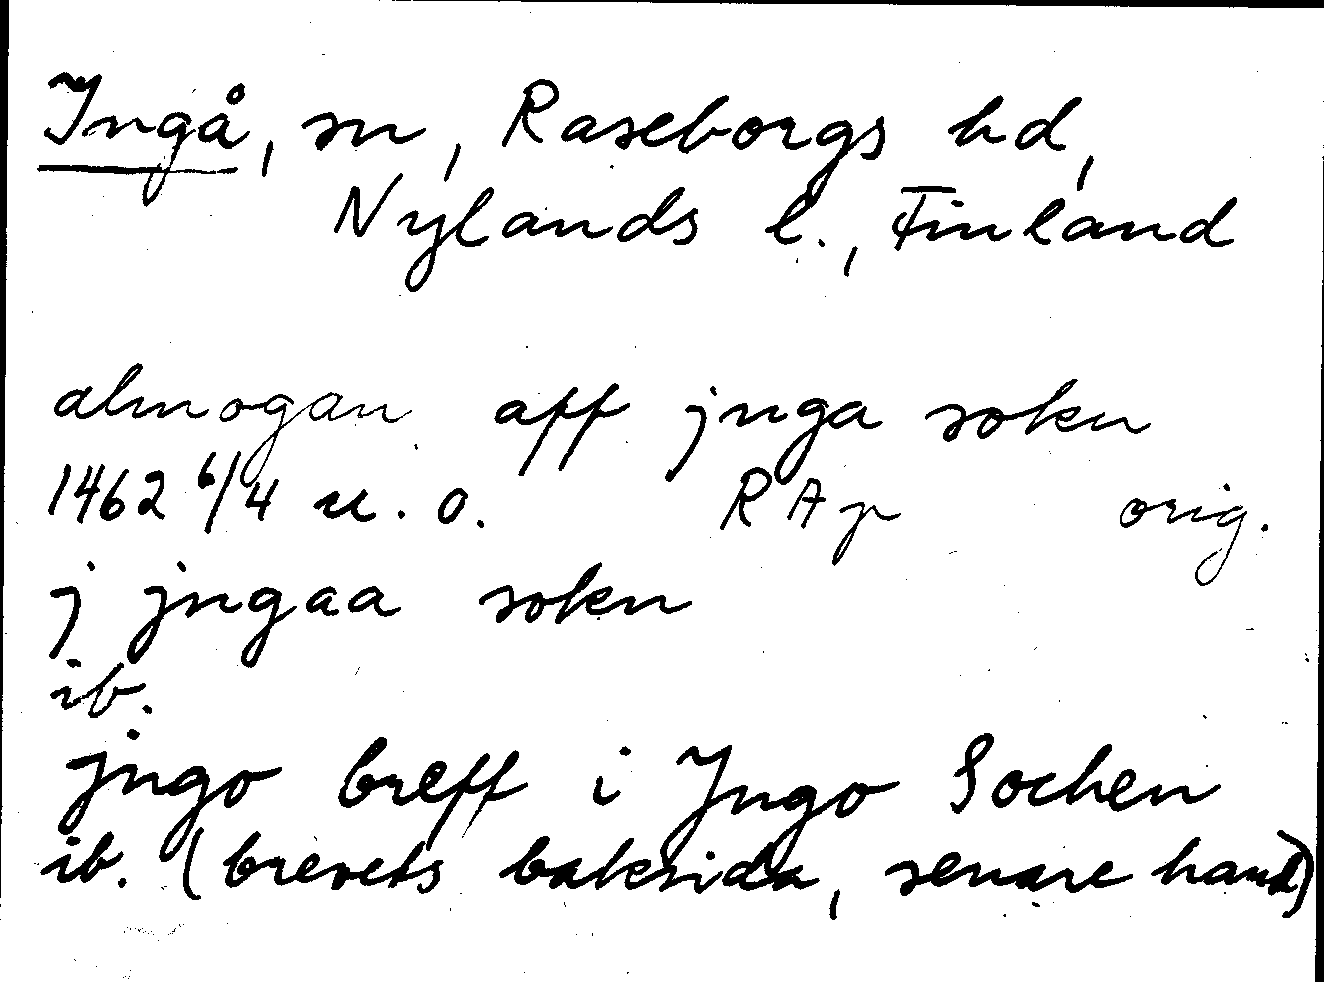 Ingå, sn, Raseborgs hd,
Nylands l., Finland
almogan aff jnga sokn
1462 6/4 u. o. RAp orig.
j jngaa sokn
ib.
jngo breff i Jngo Sochen
ib. (brevets baksida, senare hand)